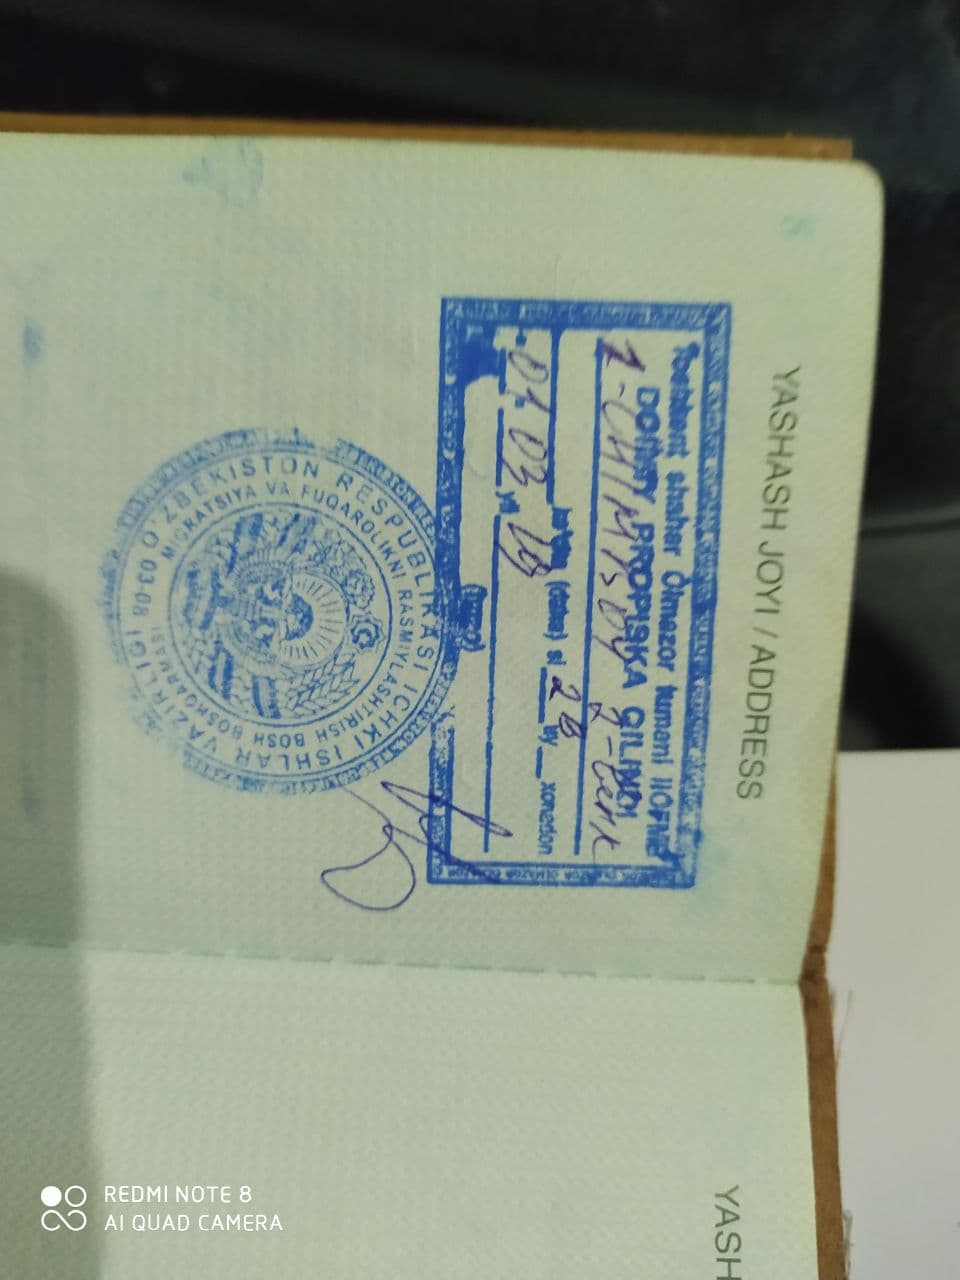 YASHASH JOYI / ADDRESS
Toshkent shahar Olmazor tumani IIOFMB
DOIMIY PROPISKA QILINDI
ko'cha (daha) si 28 uy xonadon
01.03. yil
(imzo)
O'ZBEKISTON RESPUBLIKASI ICHKI ISHLAR VAZIRLIGI 03-08
MIGRATSIYA VA FUQAROLIKNI RASMIYLASHTIRISH BOSH BOSHQARMASI
YASH
REDMI NOTE 8
AI QUAD CAMERA